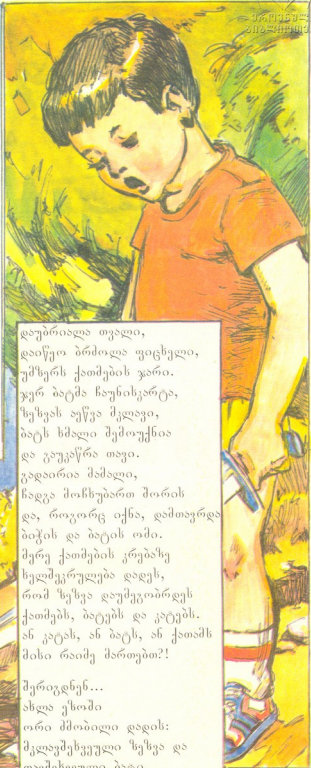 ეროვნული
ბიბლიოთეკა
დაუბრიალა თვალი,
დაიწყო ბრძოლა ფიცხელი,
უმზერს ქათმების ჯარი.
ჯერ ბატმა ჩაუნისკარტა,
ზეზვას აეწვა მკლავი,
ბატს ხმალი შემოუქნია
და გაუკაწრა თავი.
გადაირია მამალი,
ჩადგა მოჩხუბართ შორის
და, როგორც იქნა, დამთავრდა
ბიჭის და ბატის ომი.
მერე ქათმების კრებაზე
ხელშეკრულება დადეს,
რომ ზეზვა დაუმეგობრდეს
ქათმებს, ბატებს და კატებს.
ან კატას, ან ბატს, ან ქათამს
მისი რაიმე მართებთ?!
შერიგდნენ...
ახლა ეზოში
ორი ძმობილი დადის:
მკლავშეხვეული ზეზვა და
თავშეხვეული ბატი